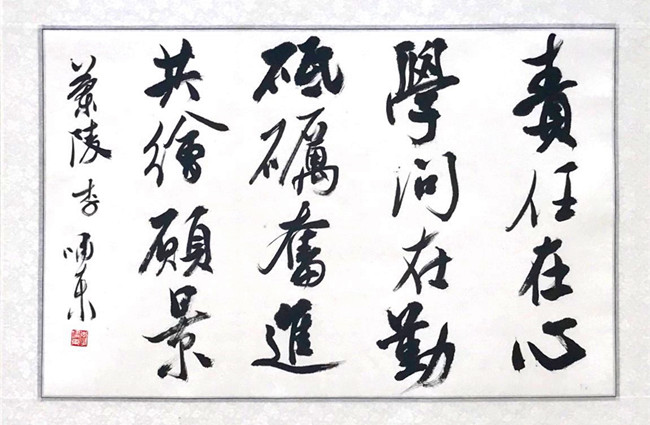 責任在心
學問在勤
砥礪奮進
共繪願景
蘭陵李